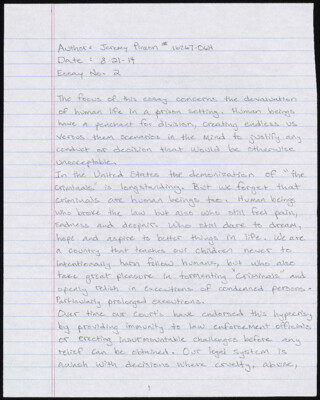 Author: Jeremy Pinson # 16267-064
Date: 8-21-14
Essay No. 2
The focus of this essay concerns the devaluation
of human life in a prison setting. Human beings
have a penchant for division, creating endless us
versus them scenarios in the mind to justify any
conduct or decision that would be otherwise
unacceptable.
In the United States the demonization of "the
criminals" is longstanding. But we forget that
criminals are human beings too. Human beings
who broke the law but also who still feel pain,
sadness and despair. Who still dare to dream,
hope and aspire to better things in life. We are
a country that teaches our children never to
intentionally harm fellow humans, but who also
take great pleasure in tormenting "criminals" and
openly relish in executions of condemned persons.
Particularly prolonged executions.
Over time our courts have endorsed this hypocrisy
by providing impunity to law enforcement officials
or erecting insurmountable challenges before any
relief can be obtained. Our legal system is
awash with decisions where cruelty, abuse,
1